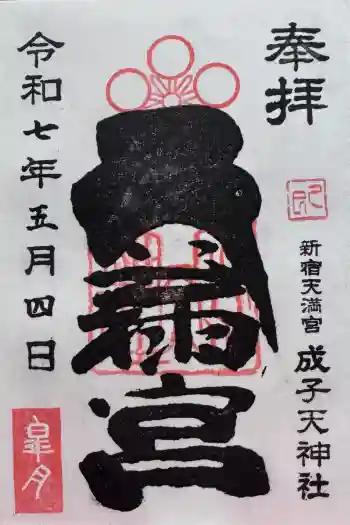 奉拝
新宿天満宮
成子天神社
天満宮
令和七年五月四日
皐月